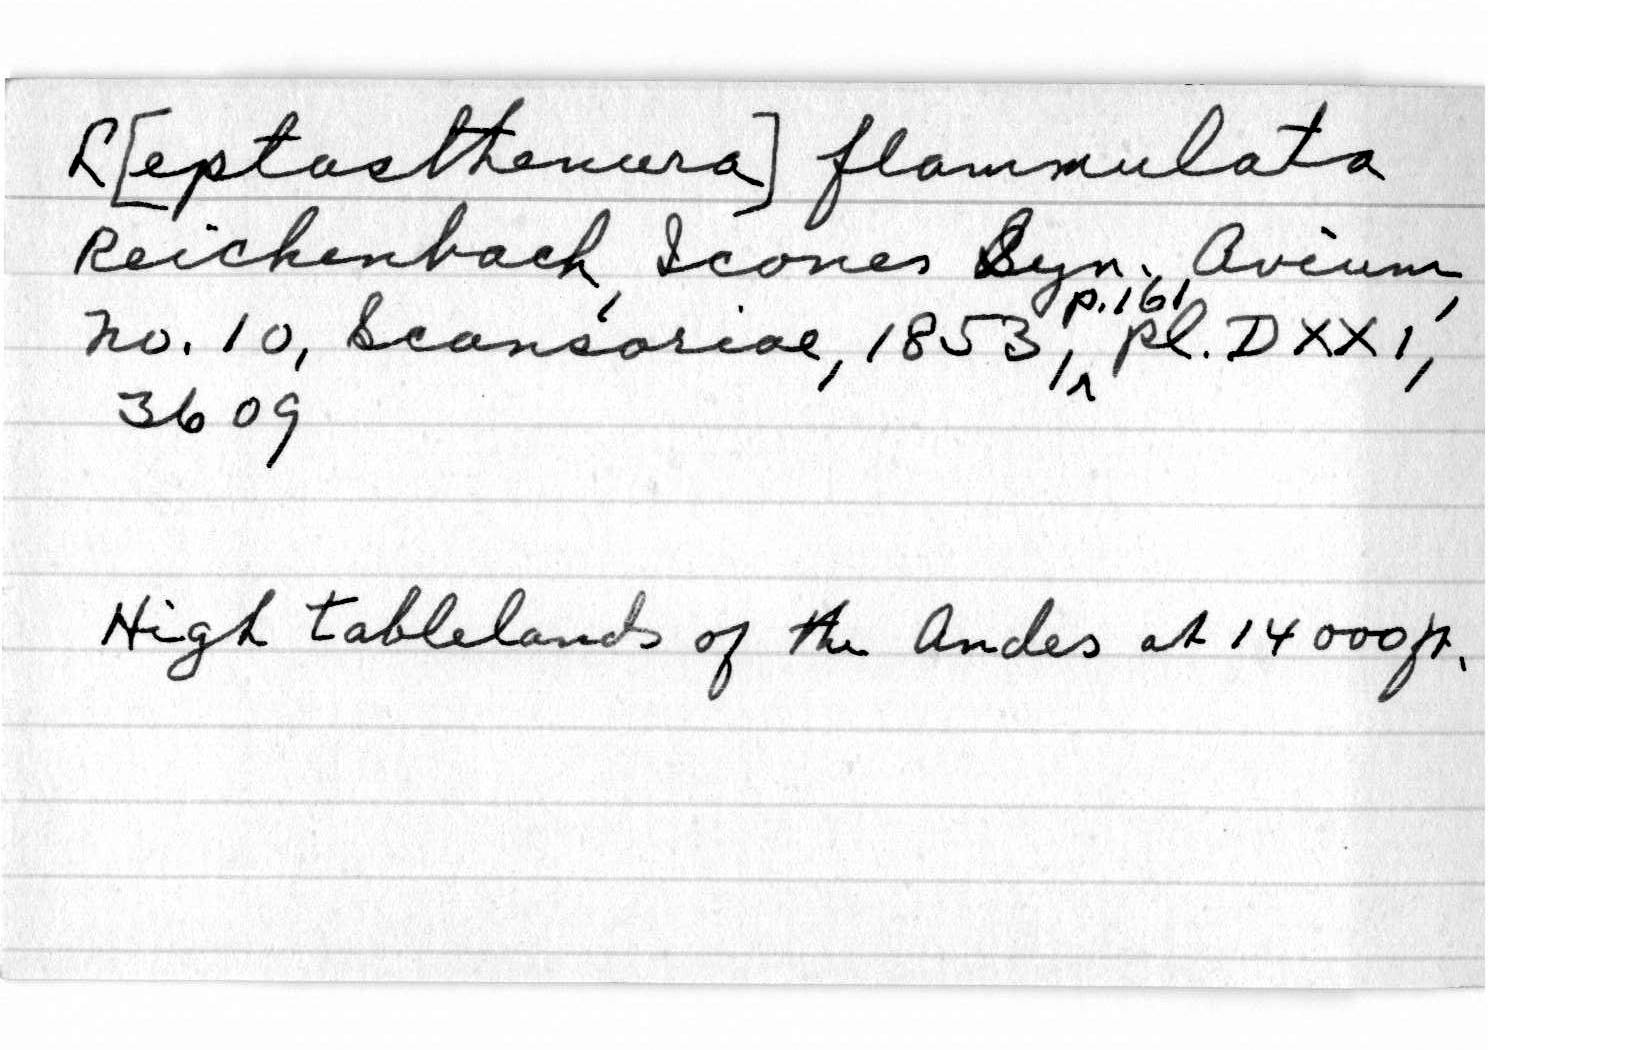 L[eptasthenura] flammulata
Reichenbach, Icones Syn. Avium,
no. 10, Scansoriae, 1853, p. 161, pl. DXXI,
3609
High tablelands of the Andes at 14000ft.